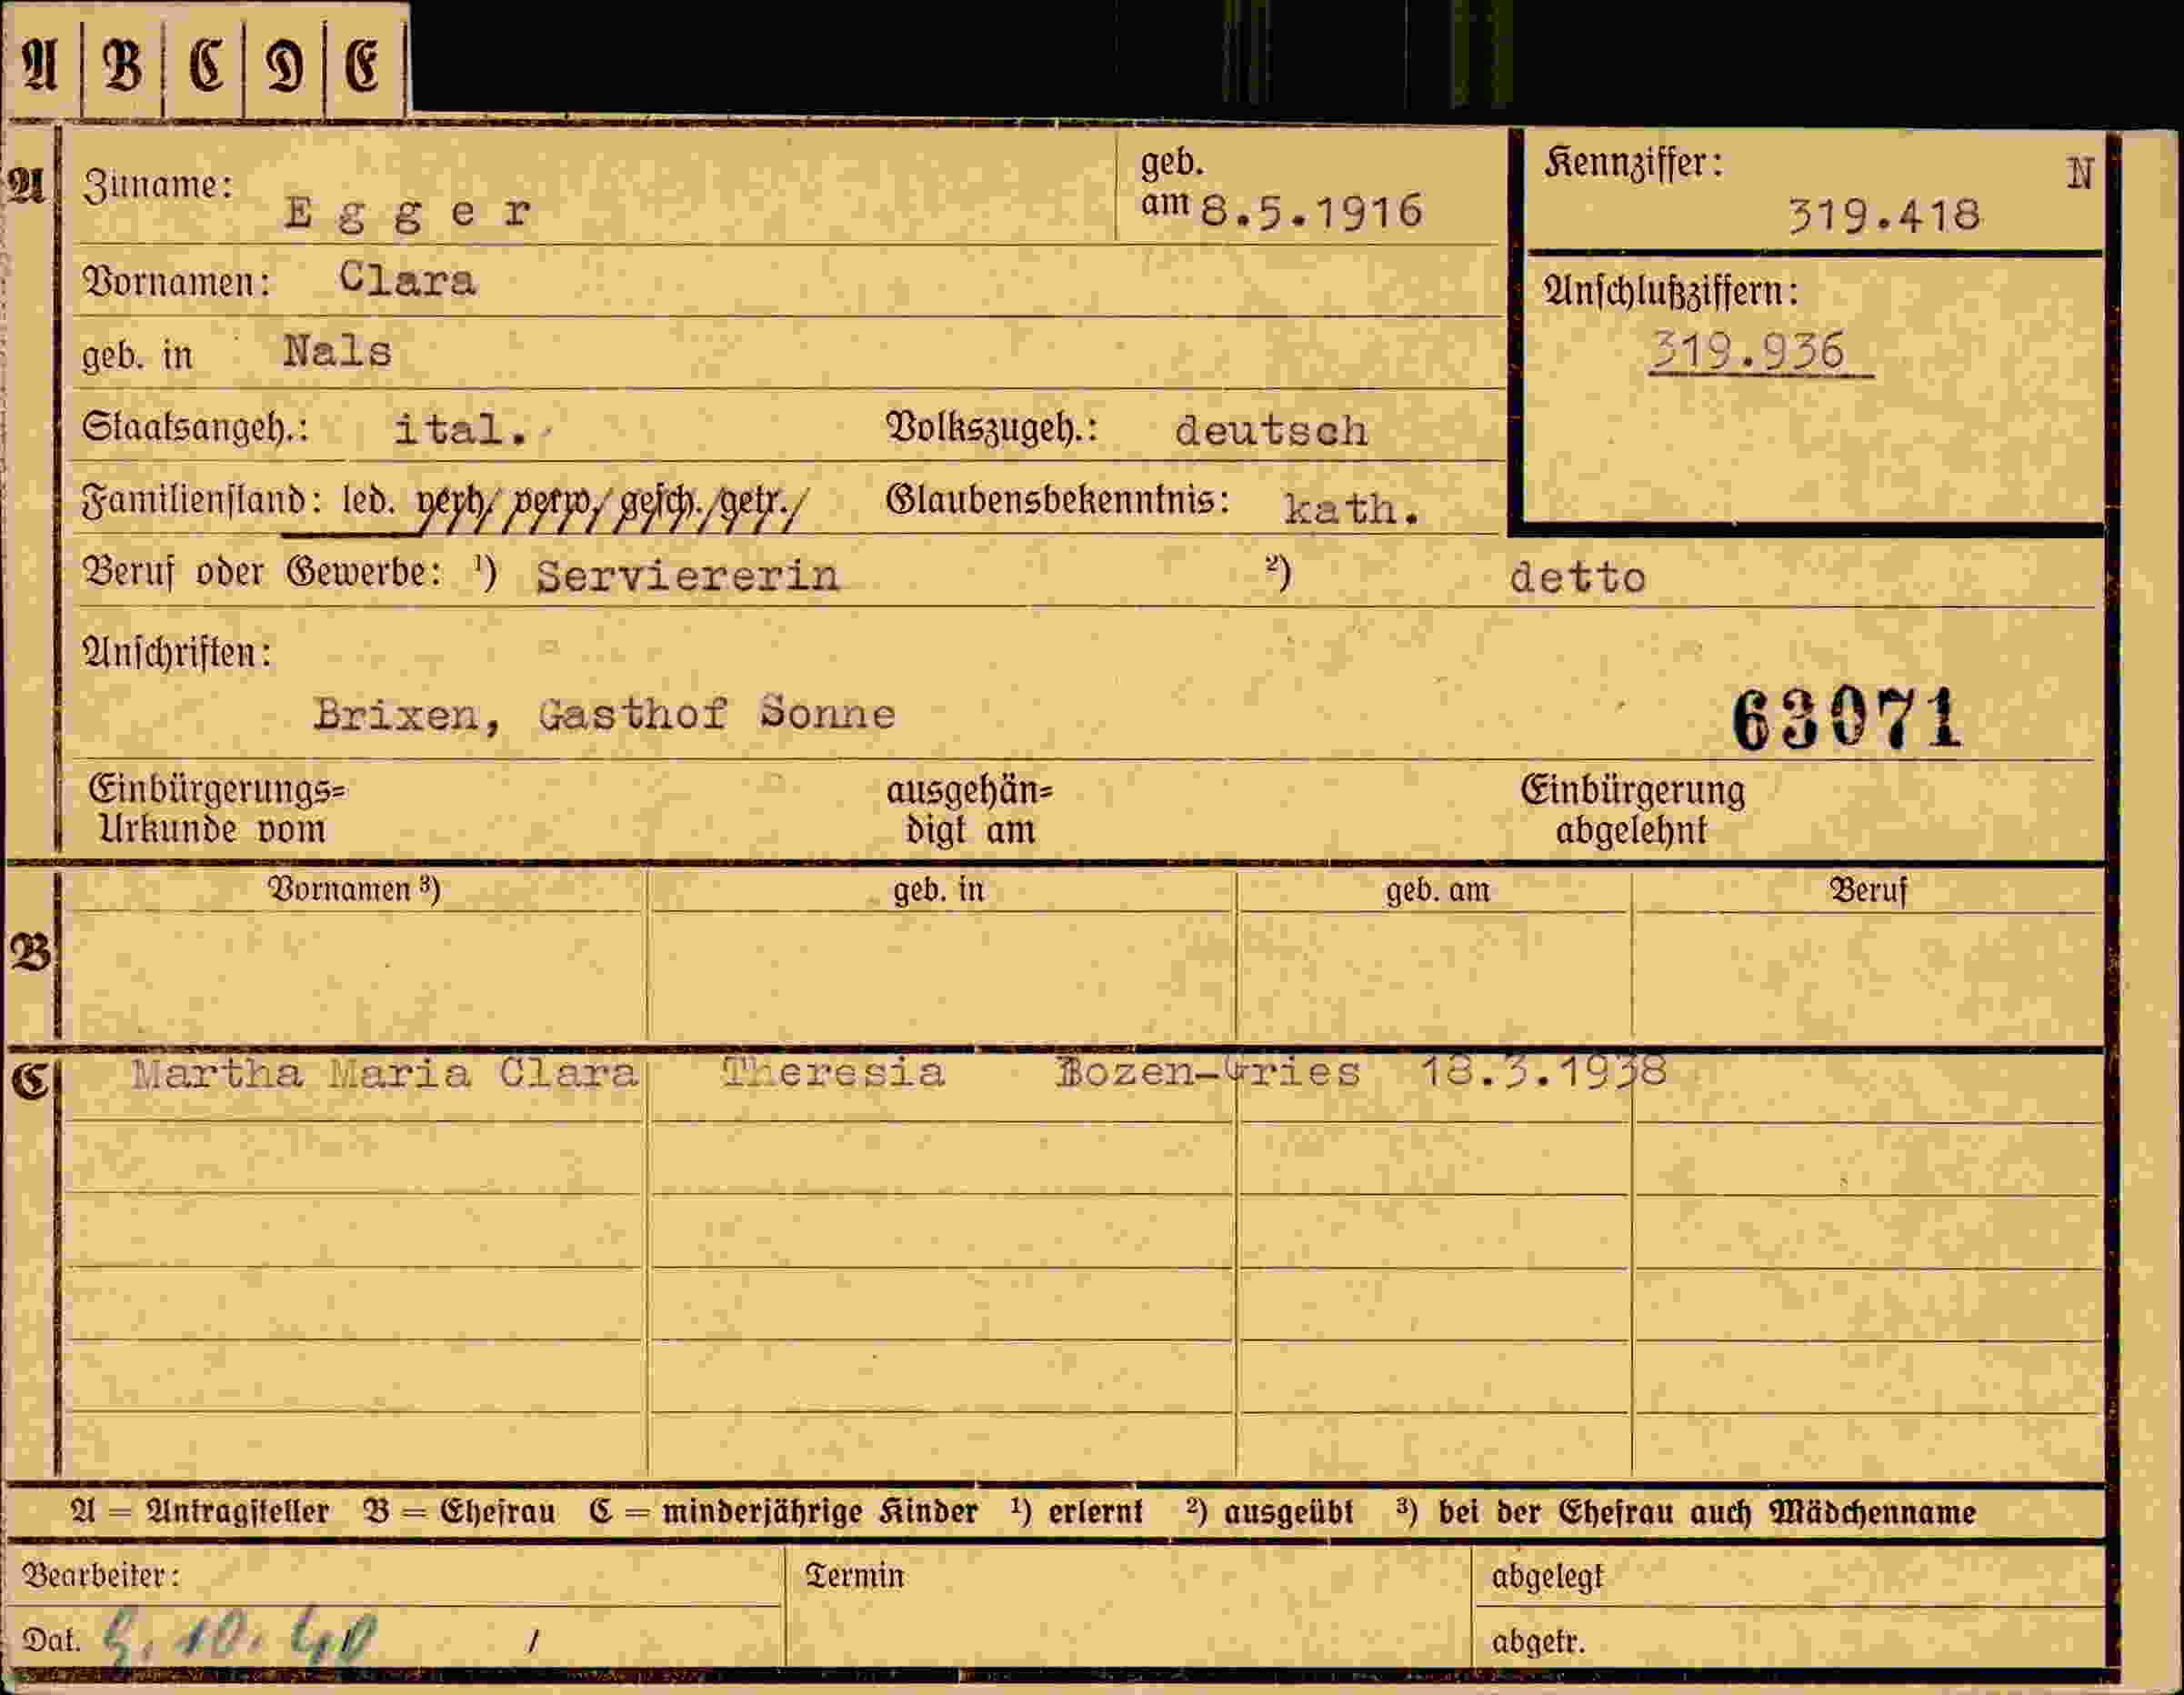 A B C D E
A Zuname: Egger geb. am 8.5.1916 Kennziffer: N 319.418
Vornamen: Clara Anschlußziffern:
geb. in Nals 319.936
Staatsangeh.: ital. Volkszugeh.: deutsch
Familienstand: led. verh/ verw/ gesch./getr./ Glaubensbekenntnis: kath.
Beruf oder Gewerbe: ¹) Serviererin ²) detto
Anschriften:
Brixen, Gasthof Sonne 63071
Einbürgerungs= ausgehän= Einbürgerung
Urkunde vom digt am abgelehnt
Vornamen ³) geb. in geb. am Beruf
B
C Martha Maria Clara Theresia Bozen-Gries 18.3.1938
A = Antragsteller B = Ehefrau C = minderjährige Kinder ¹) erlernt ²) ausgeübt ³) bei der Ehefrau auch Mädchenname
Bearbeiter: Termin abgelegt
Dat. 10. 40 / abgetr.